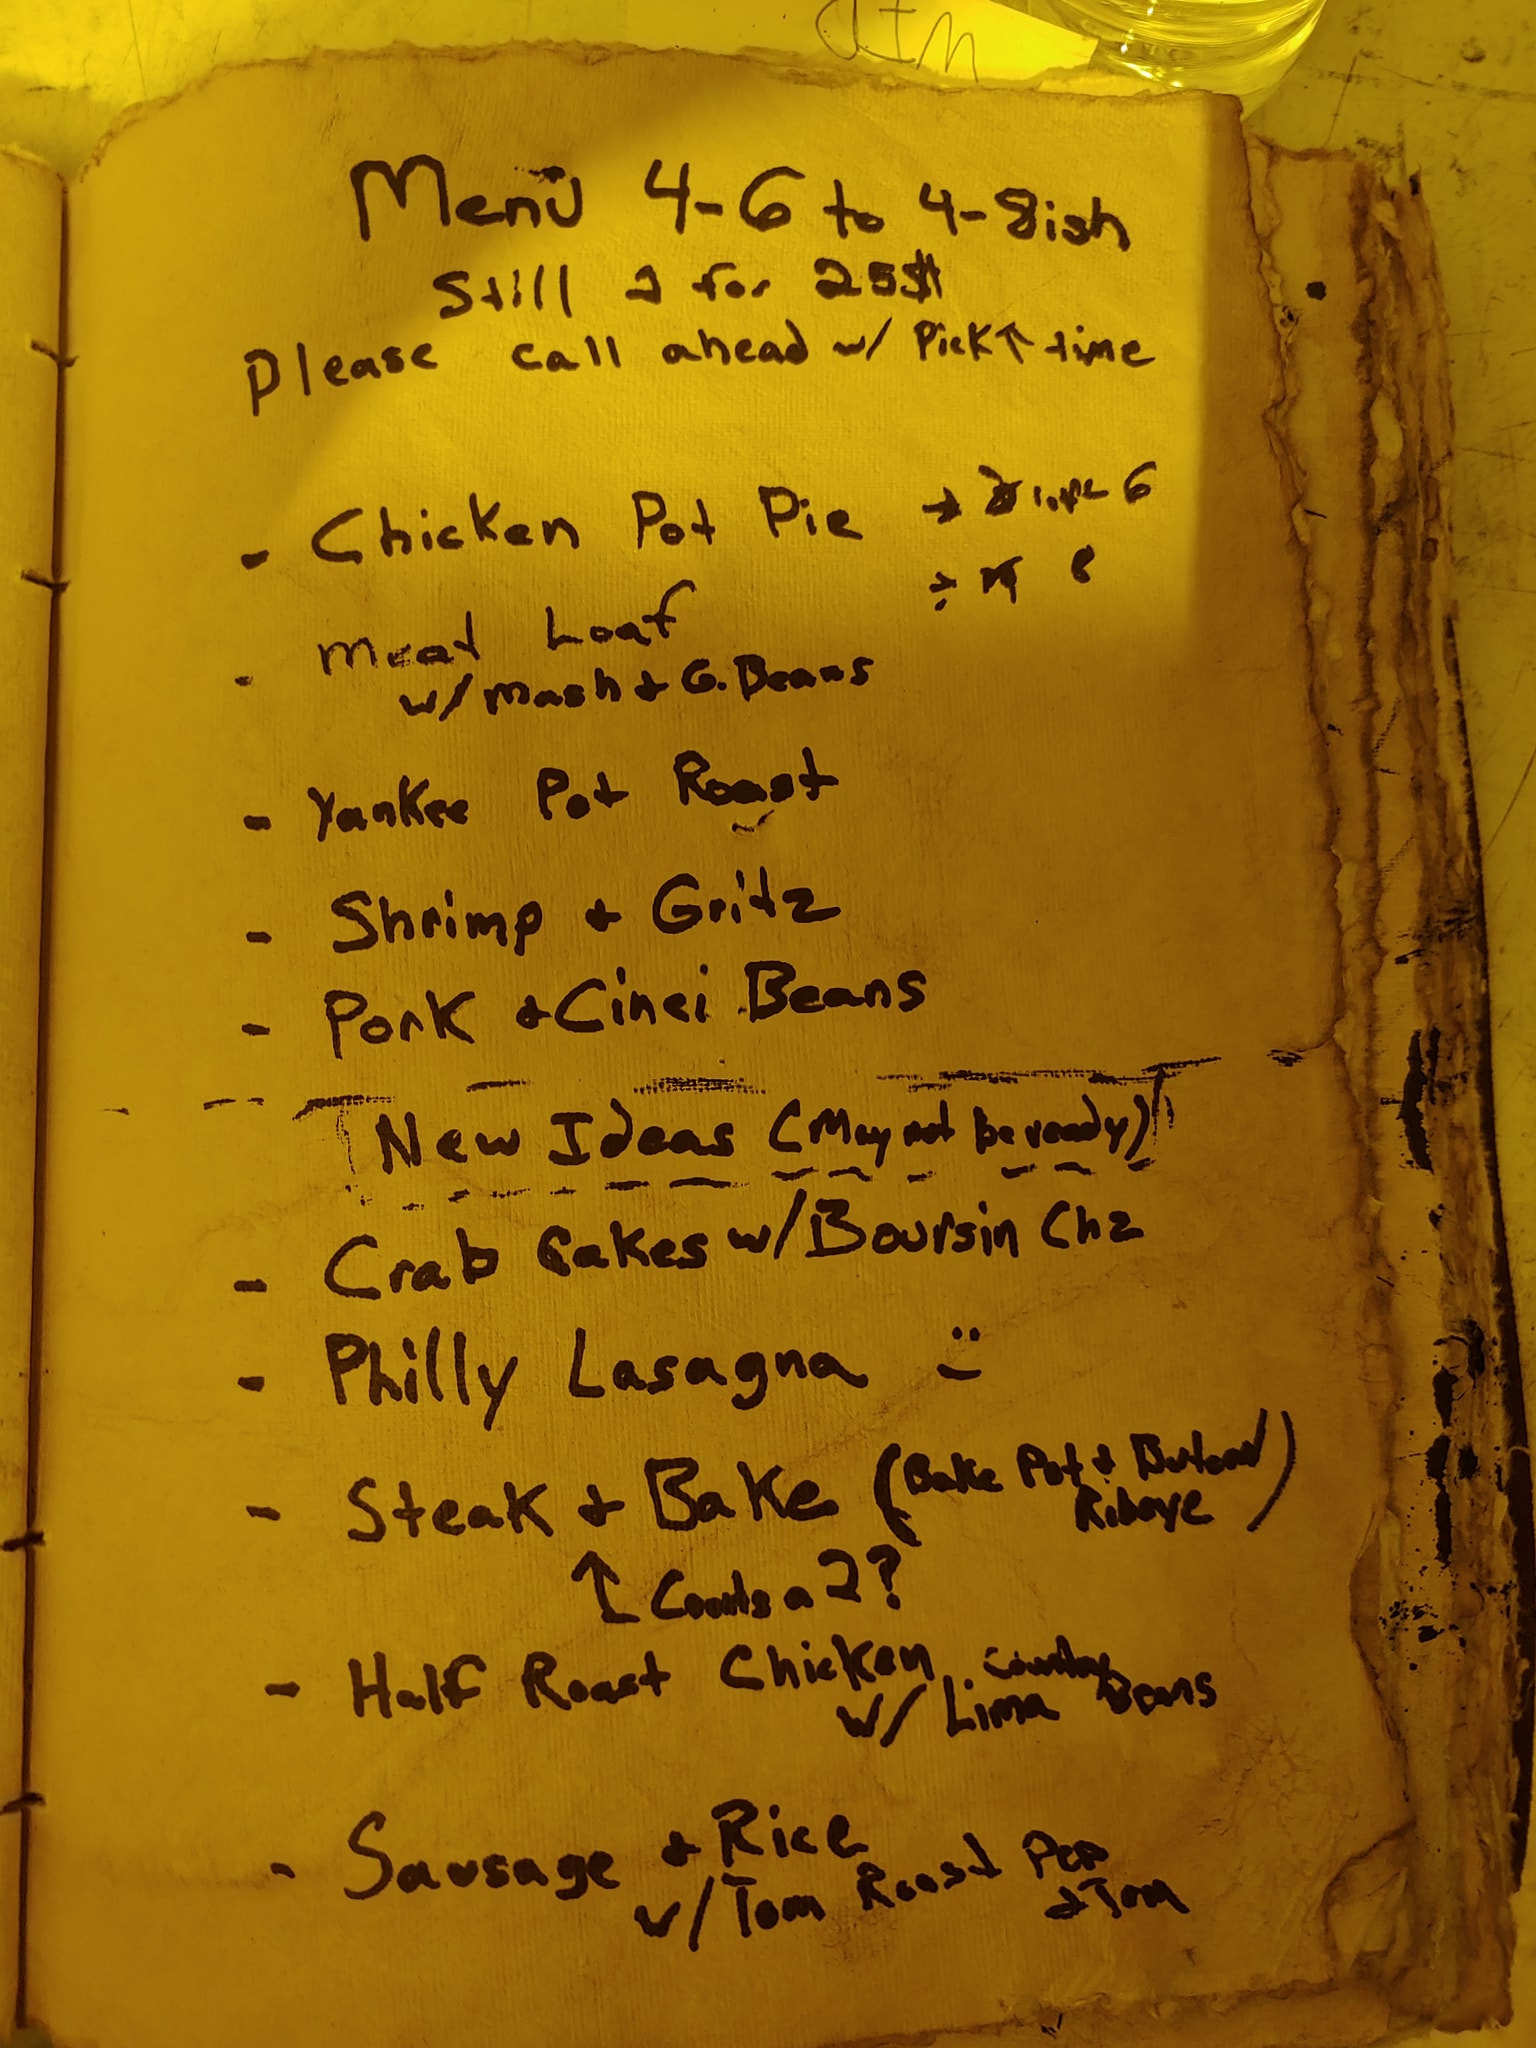 JIM
Menu 4-6 to 4-8ish
Still 2 for 25$
Please call ahead w/ Pick↑ time
- Chicken Pot Pie → 6
→ 8
- Meat Loaf
w/ Mash + G. Beans
- Yankee Pot Roast
- Shrimp + Gritz
- Pork + Cinci Beans
New Ideas (May not be ready)
- Crab Cakes w/ Boursin Chz
- Philly Lasagna :)
- Steak + Bake (Bake Pot +
Ribeye)
↑ Counts a 2?
- Half Roast Chicken Country
w/ Lima Beans
- Sausage + Rice
w/ Tom Roast Pep
+ Tom